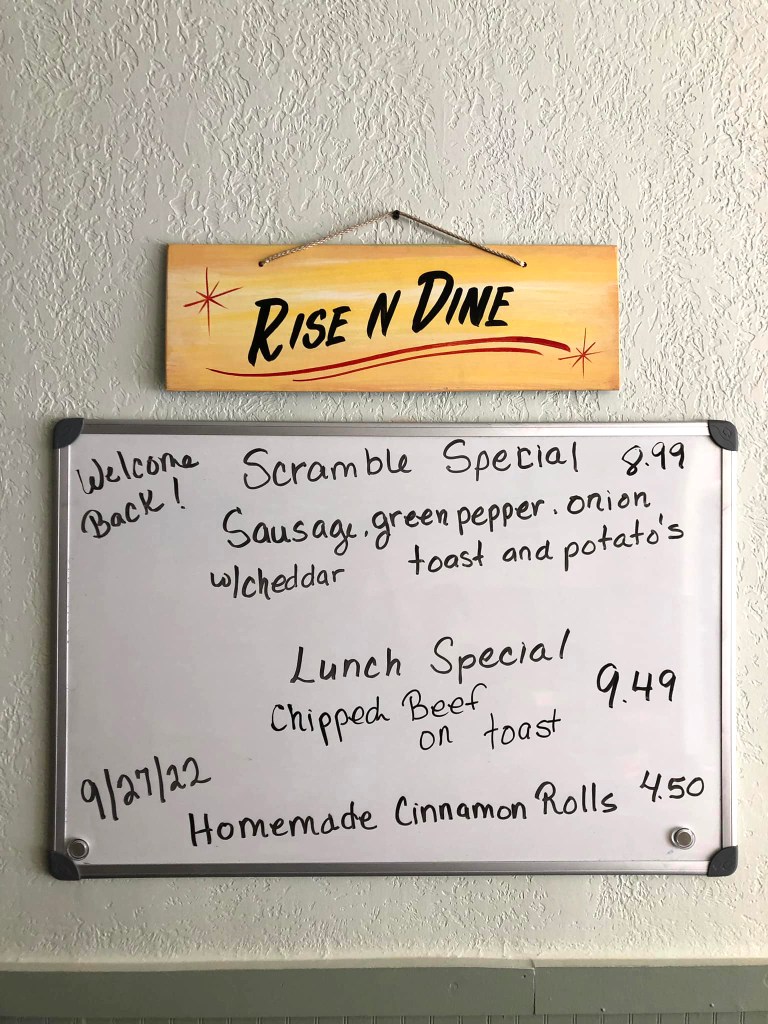 RISE N DINE
Welcome
Back!
Scramble Special 8.99
Sausage, green pepper, onion
w/cheddar toast and potato's
Lunch Special
9.49
Chipped Beef
on toast
9/27/22
Homemade Cinnamon Rolls 4.50